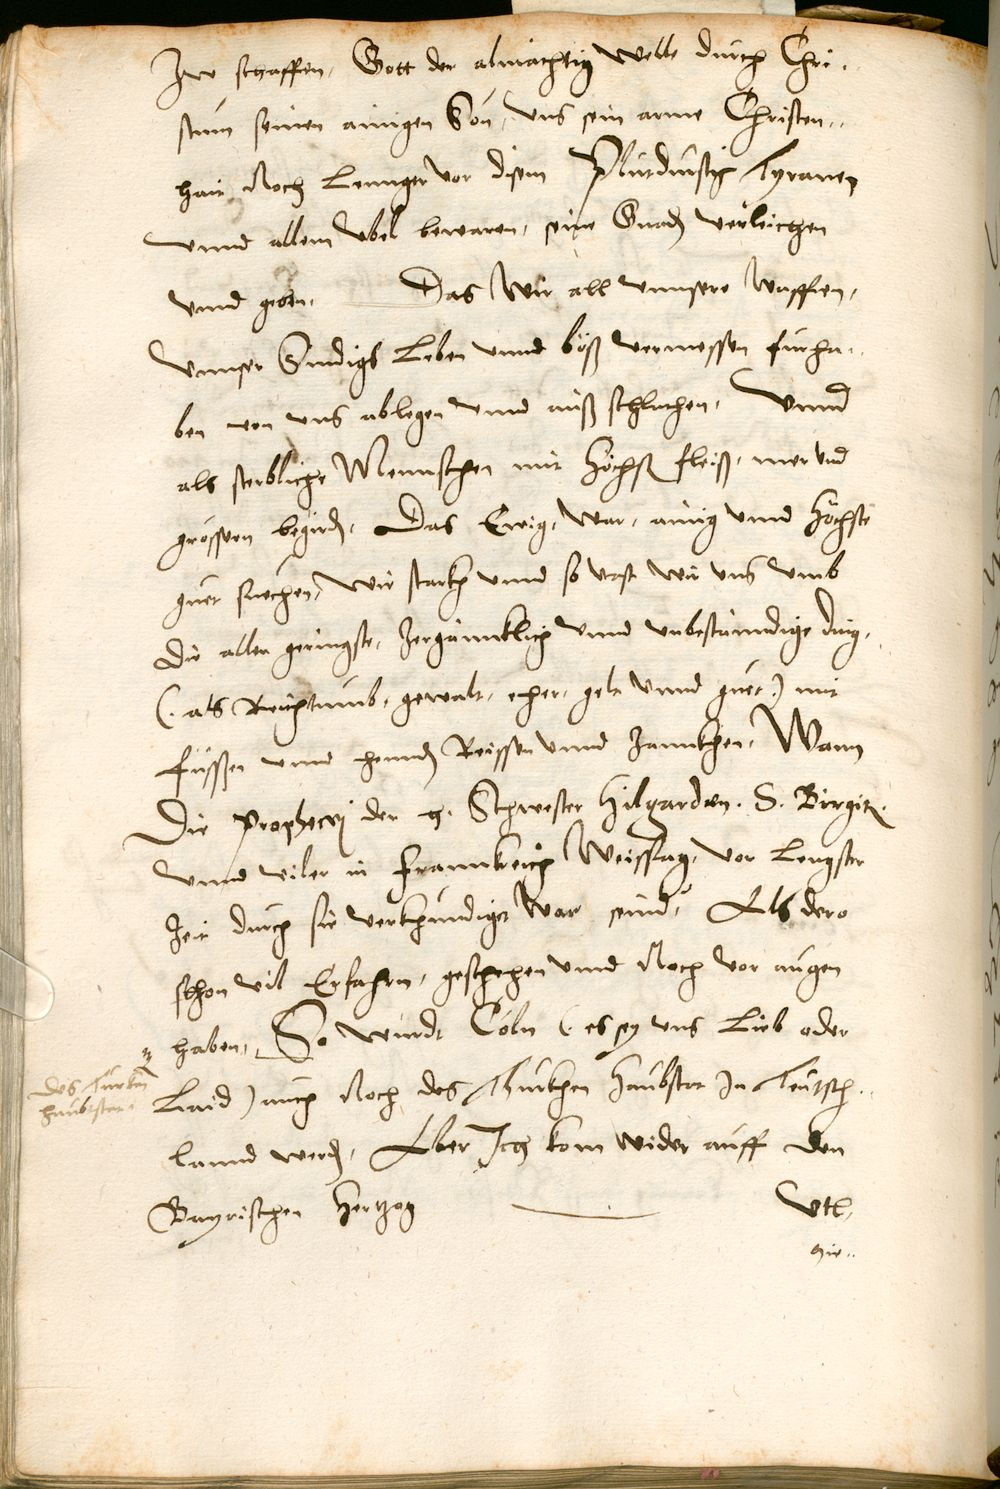 Irr schaffen, Gott der almächtig welle durch Chri-
stum seinen ainigen Son, uns sein arme Christen-
hait noch lennger vor disem Plutdurstig Tyranen
vnnd allem vbel bewaren, seine Gnad verleichen
vnnd geben, Das wir all vnnsere waffen,
vnnser Sündigs Leben vnnd böß vermessen fürha-
ben von uns ablegen vnnd auß schlachen, Vnnd
als sterbliche Mennschen mit höchst fleiß, mer vnd
grössern begird, Das Ewig, war, ainig vnnd höchste
guet suechen, wie starkh vnnd so vast wir uns vmb
die aller geringste, zergännklich vnnd vnbestänndige ding,
(als Reichtumb, gewalt, eher, gelt vnnd guet) mit
füssen vnnd hennd Reissen vnnd zannkhen, Wann
Die prophecej der h. Schwester Hilgarden. S. Birgit.
vnnd viler in Frannkreich Weissag, vor lengster
Zeit durch sie verkhündiget war seind, Als dero
schon vil Erfahrn, geschehen vnnd noch vor augen
haben, So würdt Cöln (es sey uns lieb oder
Laid) auch noch des Thürkhen haubstat In Teutsch-
lannd werd, Aber Ich kom wider auff den
Bayrischen Hertzog
Vtl,
rie..
Des Türken
haubtstat.